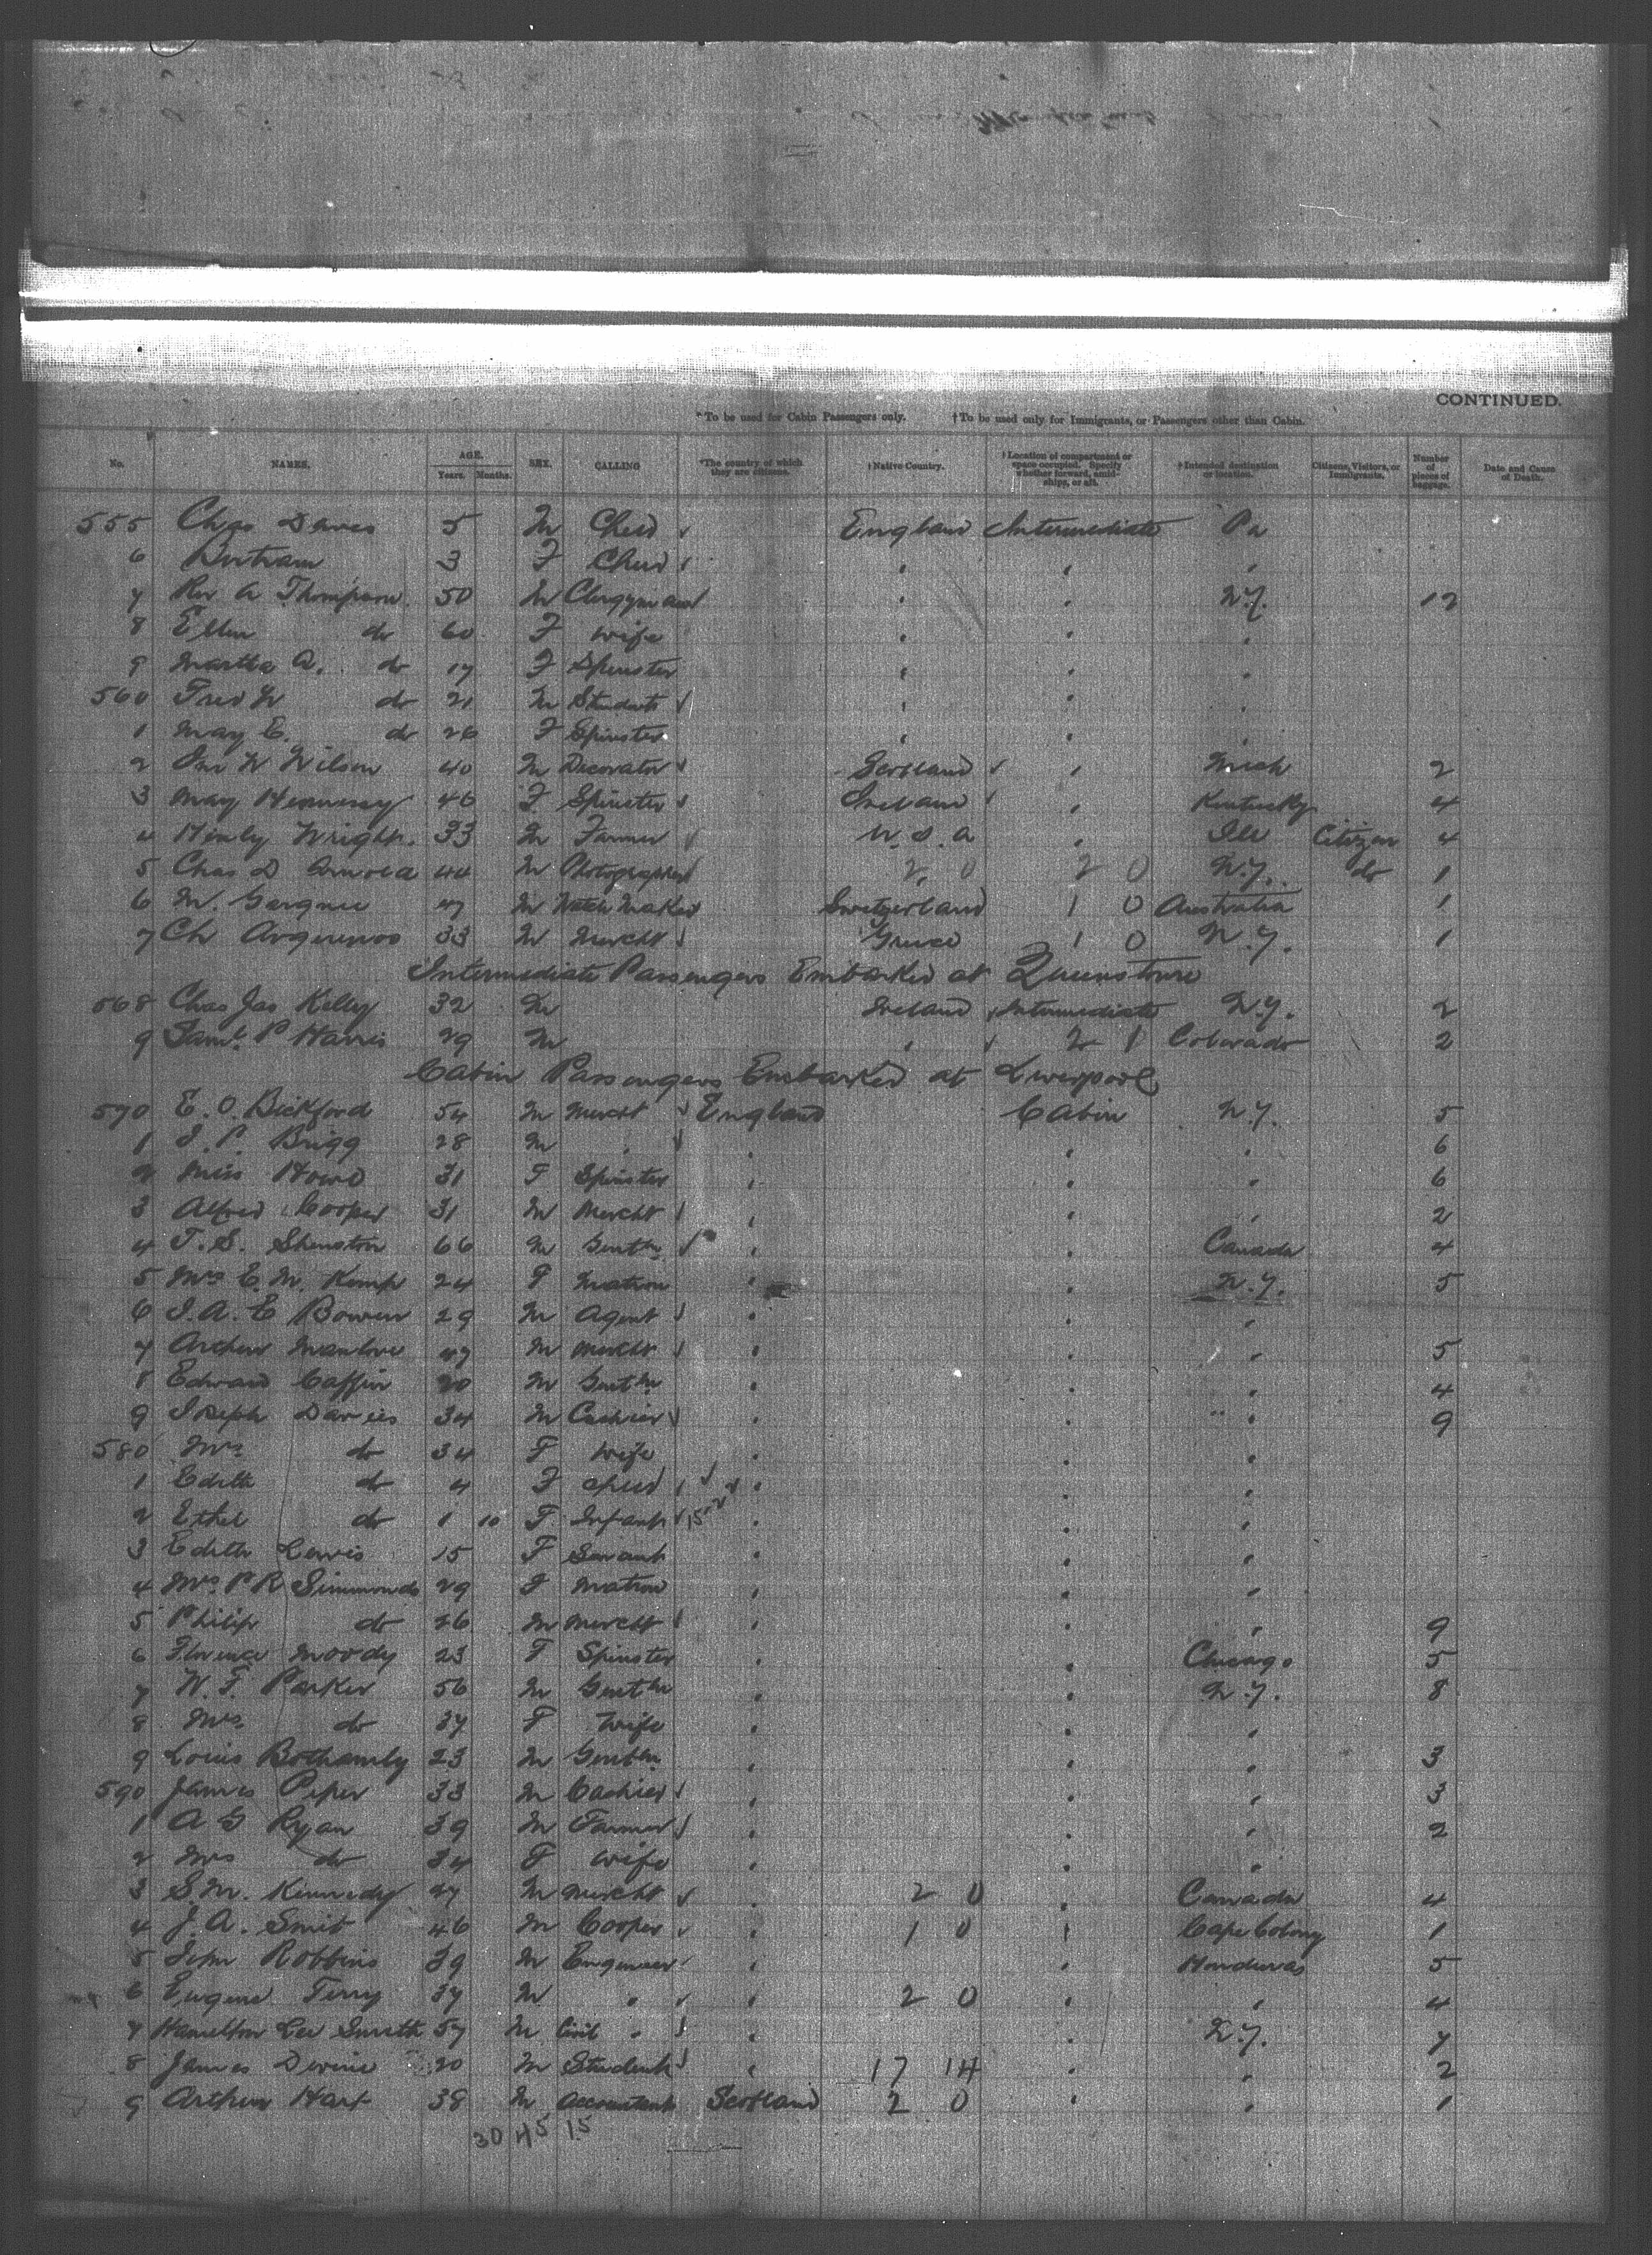 CONTINUED.
*To be used for Cabin Passengers only. †To be used only for Immigrants, or Passengers other than Cabin.
No. NAMES. AGE. Years. Months. SEX. CALLING *The country of which they are citizens. †Native Country. †Location of compartment or space occupied. Specify whether forward, amidships, or aft. †Intended destination or location. Citizens, Visitors, or Immigrants. Number of pieces of baggage. Date and Cause of Death.
555 Chas 5 M Child England Intermediate Pa
6 Bertram 3 F Child " " "
7 Rev A Thompson 50 M Clergyman " " N.Y. 12
8 Ellen do 60 F wife " " "
9 Martha A. do 17 F Spinster " " "
560 Fred W do 21 M Student " " "
1 May E. do 26 F Spinster " " "
2 Jno W Wilson 40 M Decorator Scotland " Mich 2
3 May Hennessy 46 F Spinster Ireland " Kentucky 4
4 Henly Wright. 33 M Farmer U.S.A " Ill Citizen 4
5 Chas D Arnold 44 M Photographer 2 0 2 0 N.Y. do 1
6 M. 47 M Watch Maker Switzerland 1 0 Australia 1
7 Ch 33 M Mercht Greece 1 0 N.Y. 1
Intermediate Passengers Embarked at Queenstown
568 Chas Jas Kelly 32 M Ireland Intermediate N.Y. 2
9 Saml P Harris 29 M " 2 1 Colorado 2
Cabin Passengers Embarked at Liverpool
570 E. O. Bickford 54 M Mercht England Cabin N.Y. 5
1 J. P. Brigg 28 M " " " " 6
2 Miss Howd 31 F Spinster " " " 6
3 Alfred Cooper 31 M Mercht " " " 2
4 T. S. Shenston 66 M Gentln " " Canada 4
5 Mrs E. M. Kemp 24 F Matron " " N.Y. 5
6 J. A. E Bowen 29 M Agent " " "
7 Arthur Manlove 47 M Mercht " " " 5
8 Edward Caffin 20 M Gentln " " " 4
9 Joseph Davies 34 M Cashier " " " 9
580 Mrs do 34 F wife " " "
1 Edith do 4 F child " " "
2 Ethel do 1 10 F Infant 15 " " "
3 Edith Lewis 15 F Servant " " "
4 Mrs P R Simmonds 29 F Matron " " "
5 Philip do 26 M Mercht " " " 9
6 Florence Moody 23 F Spinster " " Chicago 5
7 W. F. Parker 56 M Gentln " " N.Y. 8
8 Mrs do 37 F Wife " " "
9 Louis Bothamly 23 M Gentln " " " 3
590 James Piper 33 M Cashier " " " 3
1 A G Ryan 39 M Farmer " " " 2
2 Mrs do 34 F wife " " "
3 S. M. Kennedy 27 M Mercht " 2 0 " Canada 4
4 J. A. Smit 46 M Cooper " 1 0 " Cape Colony 1
5 John Robbins 39 M Engineer " " Honduras 5
6 Eugene Terry 37 M " " 2 0 " " 4
7 Hamilton Lee Smith 57 M Civil " " " N.Y. 7
8 James Devine 20 M Student " 17 14 " " 2
9 Arthur Hart 38 M Accountant Scotland 2 0 " " 1
30 45 15